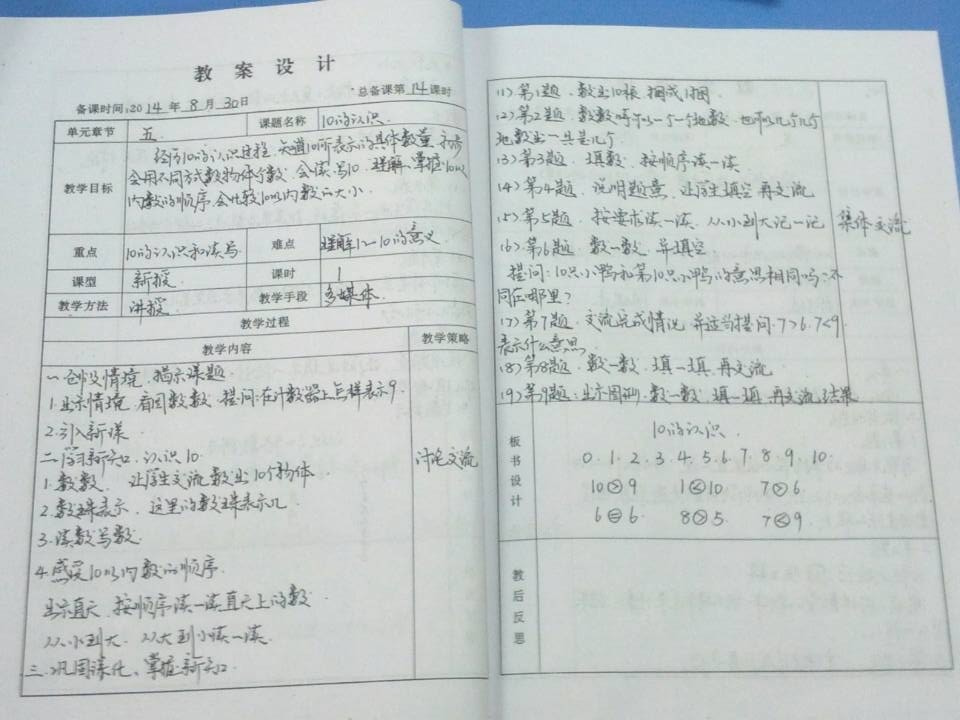 教案设计
备课时间:2014年8月30日 总备课第14课时
单元章节 五 课题名称 10的认识
教学目标
经历10的认识过程,知道10所表示的具体数量,初步
会用不同方式数物体个数,会读、写10,理解、掌握10以
内数的顺序,会比较10以内数的大小.
重点 10的认识和读写 难点 理解1~10的意义
课型 新授 课时 1
教学方法 讲授 教学手段 多媒体
教学过程
教学内容 教学策略
一、创设情境,揭示课题
1.出示情境,看图数数,提问:在计数器上怎样表示9
2.引入新课
二、学习新知,认识10
1.数数. 让学生交流数出10个物体
2.数珠表示,这里的数珠表示几
3.读数写数
4.感受10以内数的顺序
出示直尺,按顺序读一读直尺上的数
从小到大,从大到小读一读
三、巩固深化、掌握新知
讨论交流
(1)第1题,数出10根,捆成1捆
(2)第2题,数数时可以一个一个地数,也可以几个几个
地数出一共是几个
(3)第3题,填数,按顺序读一读
(4)第4题,说明题意,让学生填空再交流
(5)第5题,按要求读一读,从小到大记一记
(6)第6题,数一数,并填空
提问:10只小鸭和第10只小鸭的意思相同吗?不
同在哪里?
(7)第7题,交流完成情况,并适当提问.7>6.7<9.
表示什么意思
(8)第8题,数一数,填一填,再交流
(9)第9题:出示图形,数一数,填一填,再交流结果
集体交流
板书设计
10的认识.
0. 1. 2. 3. 4. 5. 6. 7. 8. 9. 10.
10>9 1<10 7>6.
6=6. 8>5. 7<9.
教后反思